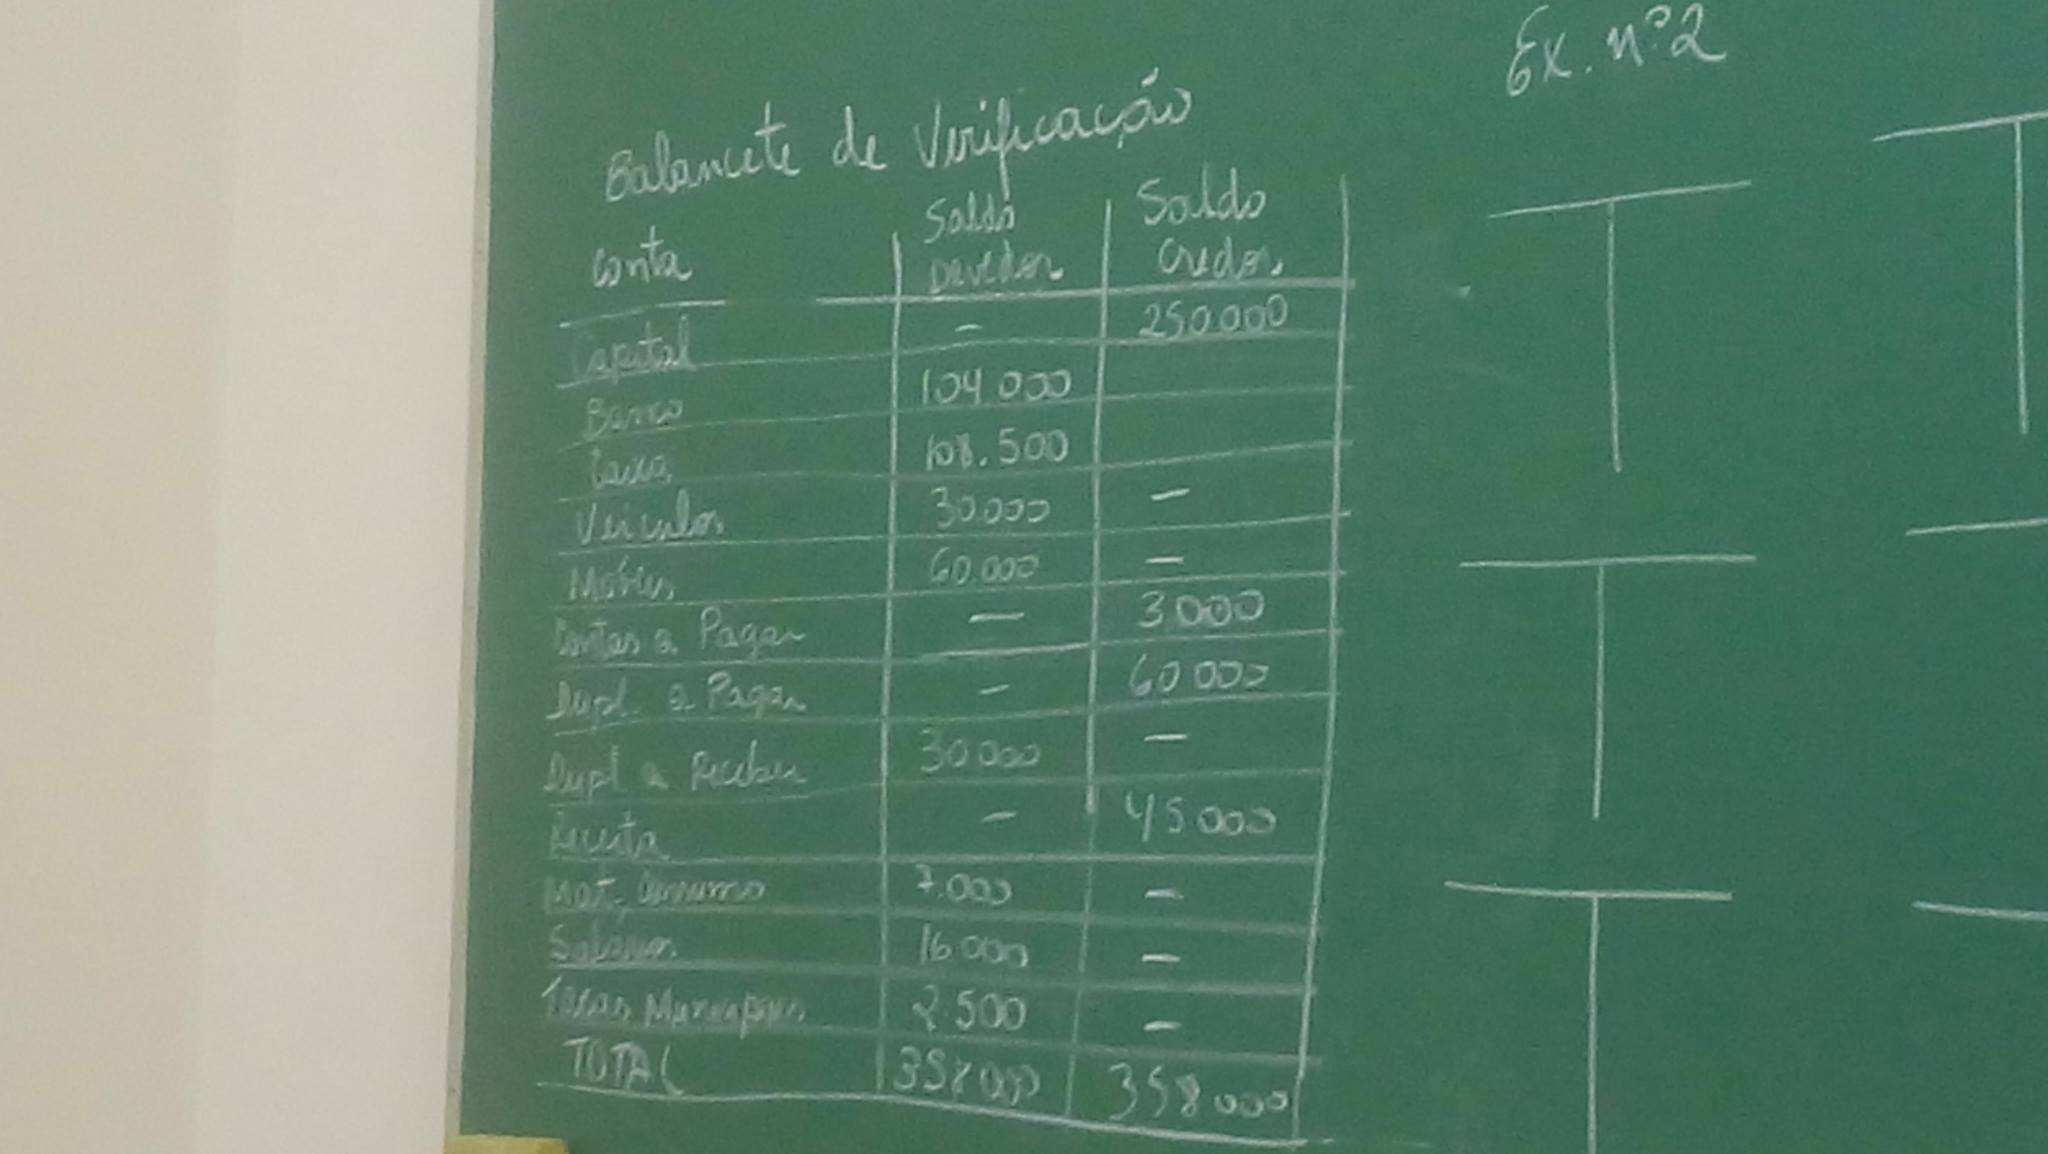 Ex. nº 2
Balancete de Verificação
Conta Saldo Devedor Saldo Credor
Capital - 250.000
Banco 104.000
Caixa 108.500
Veiculos 30.000 -
Móveis 60.000 -
Contas a Pagar - 3.000
Dupl. a Pagar - 60.000
Dupl a Receber 30.000 -
Receita - 45.000
Mat. Consumo 7.000 -
Salários 16.000 -
Taxas Municipais 2.500 -
TOTAL 358.000 358.000